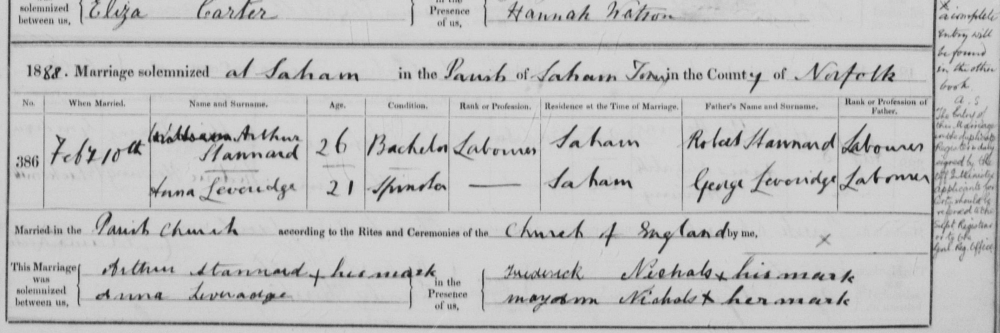 solemnized between us, Eliza Carter
in the Presence of us, Hannah Watson
1888. Marriage solemnized at Saham in the Parish of Saham Toney in the County of Norfolk
No. When Married. Name and Surname. Age. Condition. Rank or Profession. Residence at the Time of Marriage. Father's Name and Surname. Rank or Profession of Father.
386 Feby 10th William Arthur Stannard 26 Bachelor Labourer Saham Robert Stannard Labourer
Anna Leveridge 21 Spinster — Saham George Leveridge Labourer
Married in the Parish Church according to the Rites and Ceremonies of the Church of England by me, x
This Marriage was solemnized between us, Arthur Stannard x his mark
Anna Leveradge
in the Presence of us, Frederick Nichols x his mark
Nichols x her mark
x
a complete
entry will
be found
in the other
book
A. S.
The Entry of
this Marriage